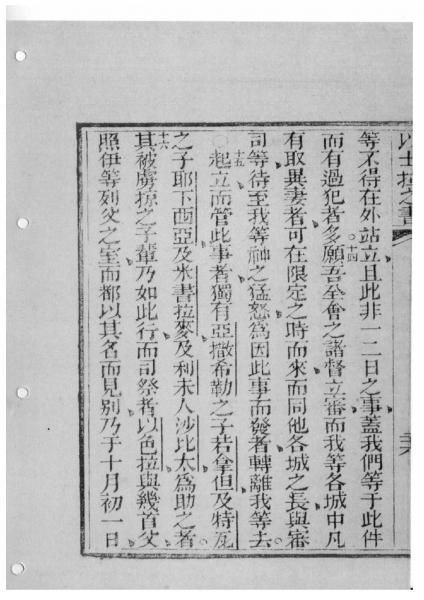 以士拉之書
等不得在外站立且此非一二日之事蓋我們等于此件
而有過犯者多願吾全會之諸督立審而我等各城中凡
十四
有取異妻者可在限定之時而來而同他各城之長與審
司等待至我等神之猛怒為因此事而發者轉離我等去
十五
起立而管此事者獨有亞撒希勒之子若拿但及特瓦
之子耶下西亞及米書拉麥及利未人沙比太為助之者
十六
其被虜掠之子輩乃如此行而司祭者以色拉與幾首父
照伊等列父之室而都以其名而見別乃于十月初一日